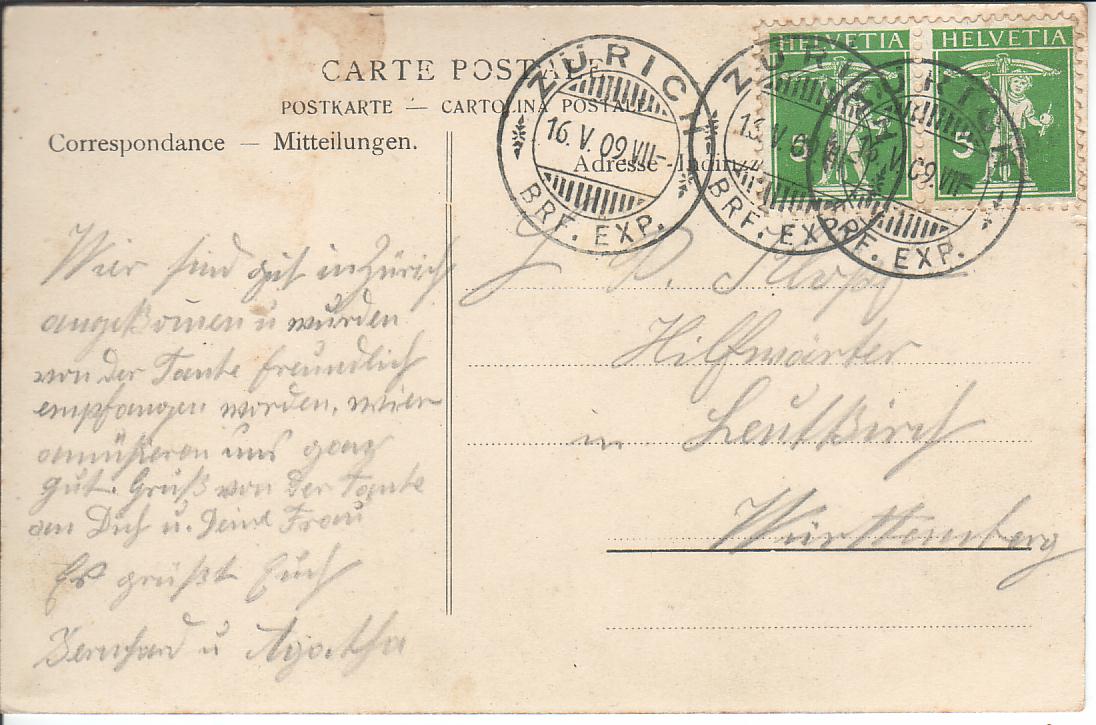 CARTE POSTALE
POSTKARTE — CARTOLINA POSTALE
Correspondance — Mitteilungen.
Adresse - Indiriz
ZÜRICH
16. V. 09. VII-
BRF. EXP.
ZÜRICH
16. V. 09. VII-
BRF. EXP.
ZÜRICH
16. V. 09. VII-
BRF. EXP.
HELVETIA
5
HELVETIA
5
Wier sind gut in Zürich
angekomen u wurden
von der Tante freundlich
empfangen worden, wier
amüßeren uns ganz
gut. Gruß von der Tante
an Dich u. Deine Frau
Es grüßt Euch
Bernhard u Agatha
Hilfwärter
in Leutkirch
Württemberg